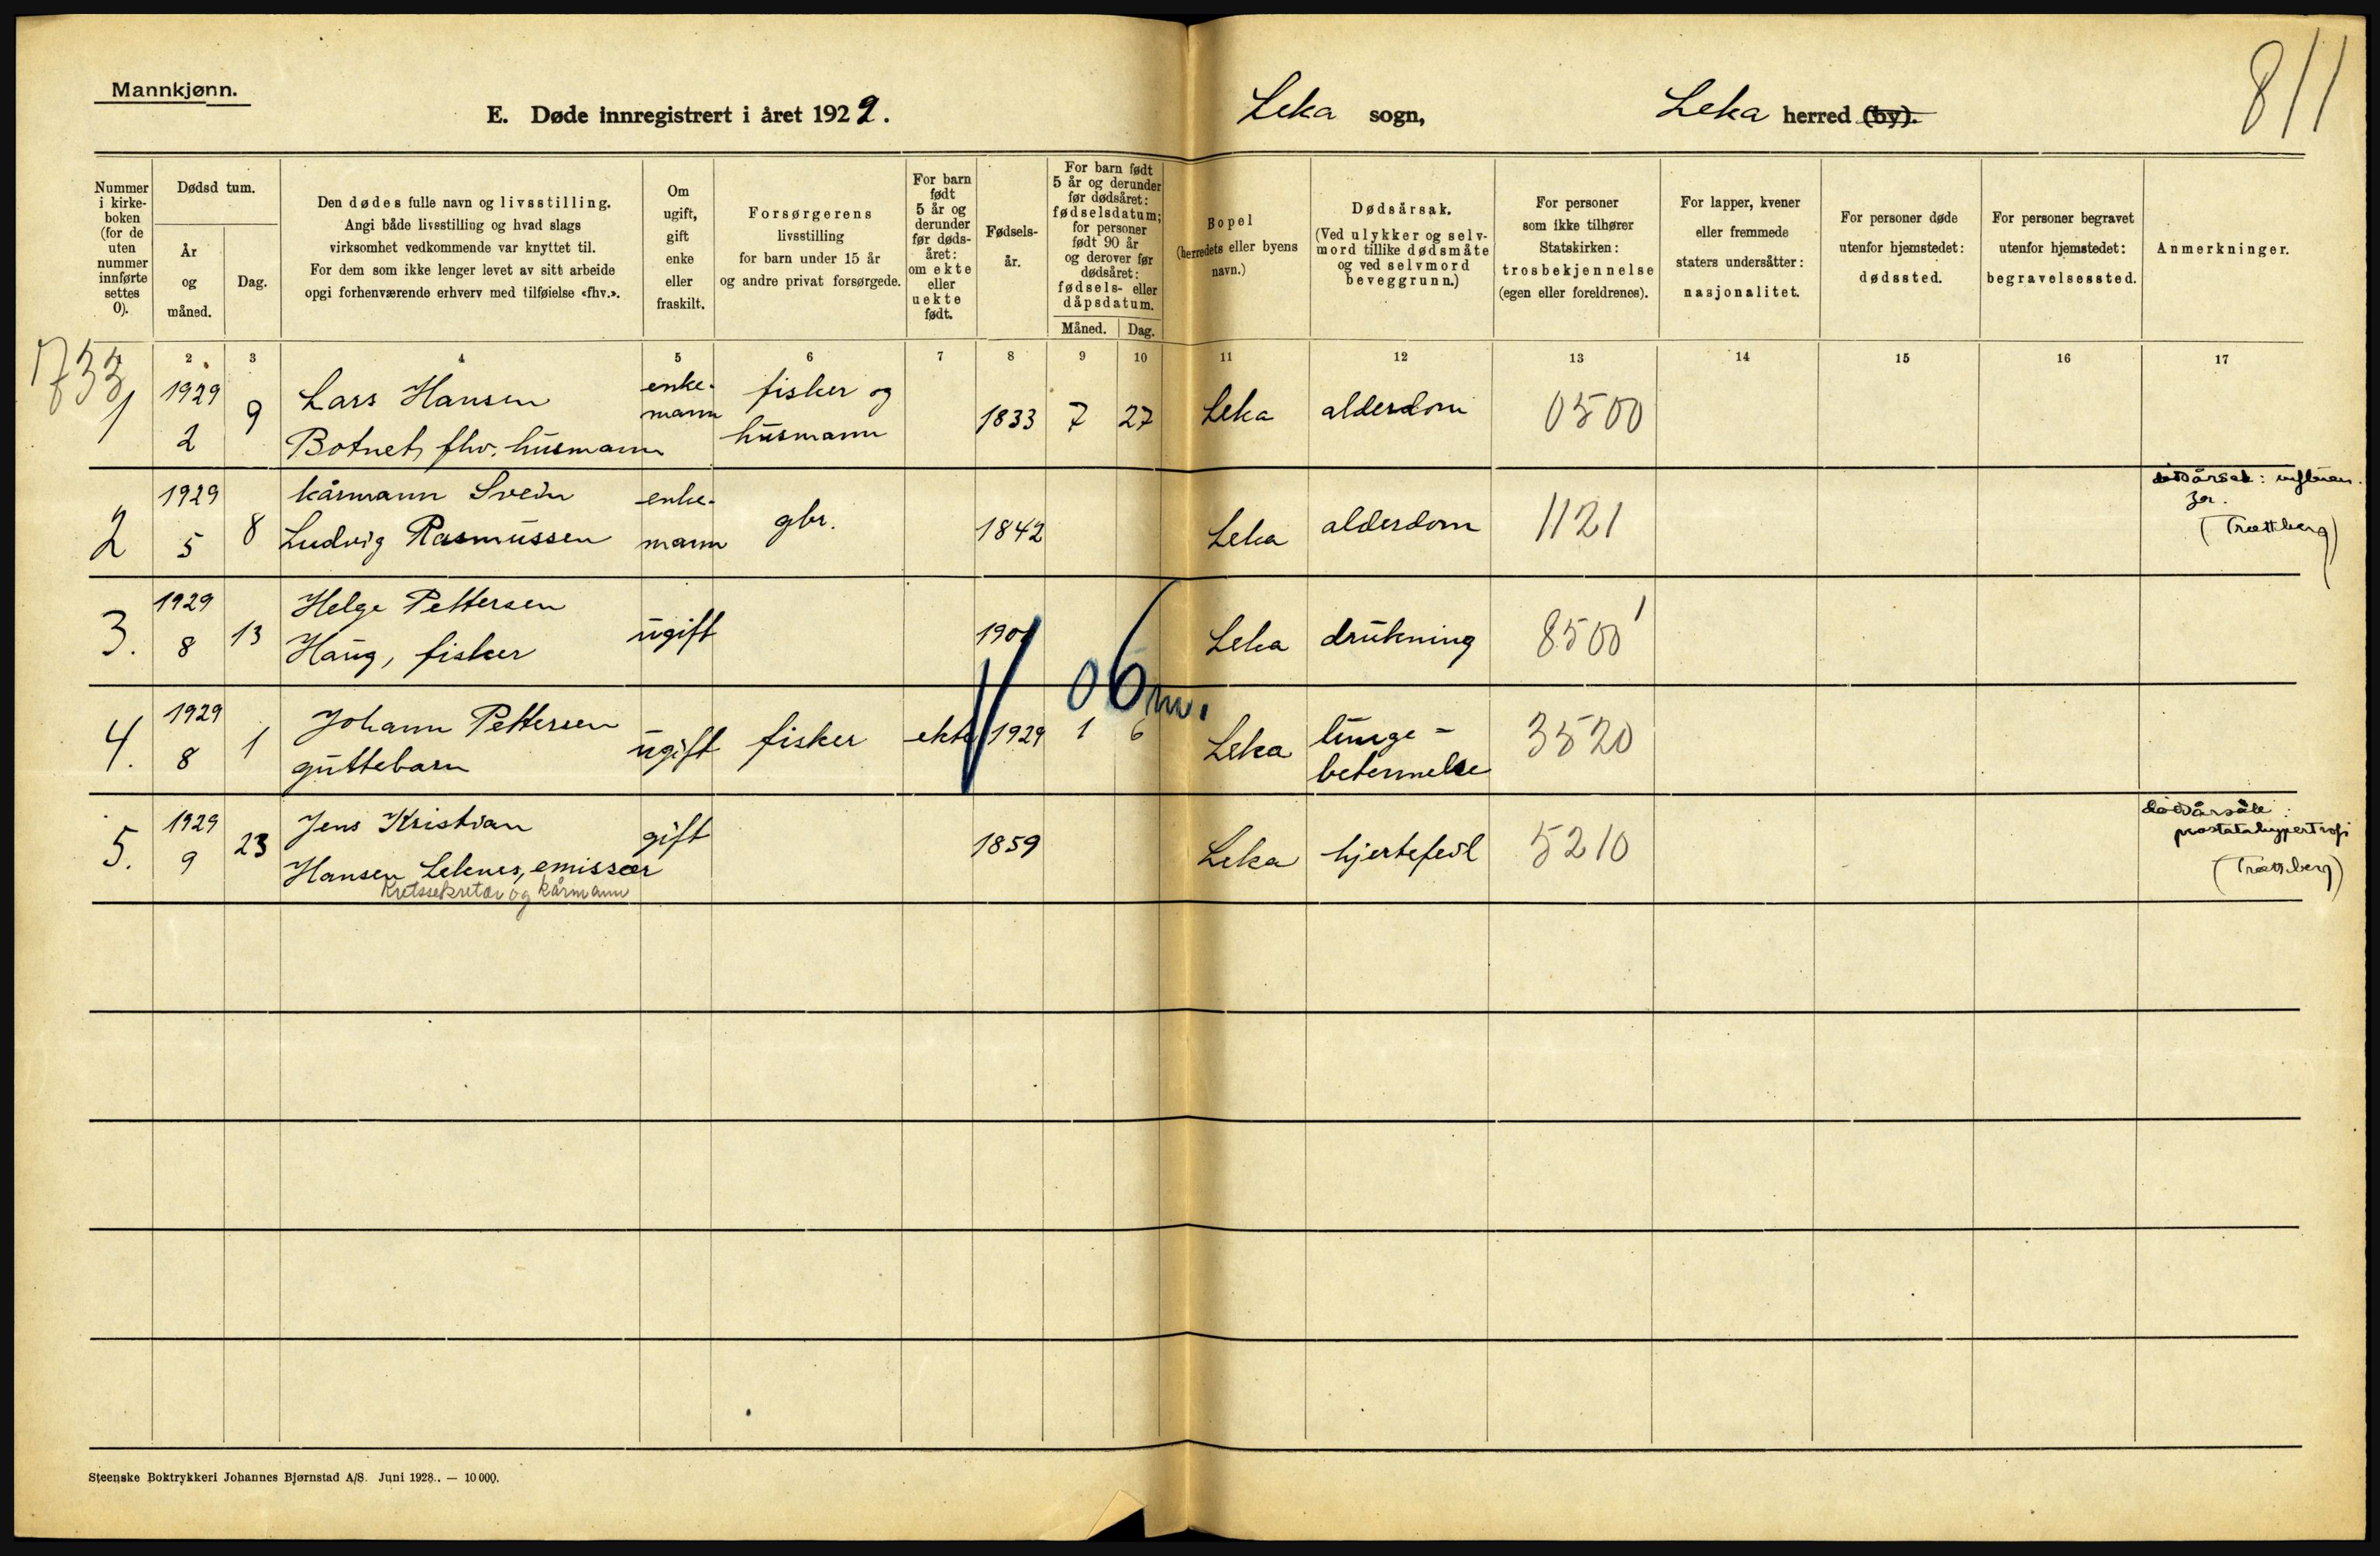 Mannkjønn.
E. Døde innregistrert i året 1929.
Leka sogn,
Leka herred (by).
811
Nummer
i kirke-
boken
(for de
uten
nummer
innførte
settes
0).
Dødsd tum.
År
og
måned.
Dag.
Den dødes fulle navn og livsstilling.
Angi både livsstilling og hvad slags
virksomhet vedkommende var knyttet til.
For dem som ikke lenger levet av sitt arbeide
opgi forhenværende erhverv med tilføielse «fhv.».
Om
ugift,
gift
enke
eller
fraskilt.
Forsørgerens
livsstilling
for barn under 15 år
og andre privat forsørgede.
For barn
født
5 år og
derunder
før døds-
året:
om ekte
eller
uekte
født.
Fødsels-
år.
For barn født
5 år og derunder
før dødsåret:
fødselsdatum;
for personer
født 90 år
og derover før
dødsåret:
fødsels- eller
dåpsdatum.
Måned.
Dag.
Bopel
(herredets eller byens
navn.)
Dødsårsak.
(Ved ulykker og selv-
mord tillike dødsmåte
og ved selvmord
beveggrunn.)
For personer
som ikke tilhører
Statskirken:
trosbekjennelse
(egen eller foreldrenes).
For lapper, kvener
eller fremmede
staters undersåtter:
nasjonalitet.
For personer døde
utenfor hjemstedet:
dødssted.
For personer begravet
utenfor hjemstedet:
begravelsessted.
Anmerkninger.
2 3 4 5 6 7 8 9 10 11 12 13 14 15 16 17
1733
1 1929 2 9 Lars Hansen
Botnet, fhv. husmann
enke-
mann
fisker og
husmann
1833 7 27 Leka alderdom 0500
2 1929 5 8 kårmann Svein
Ludvig Rasmussen
enke-
mann
gbr. 1842 Leka alderdom 1121
dødsårsak: influen-
za.
(Trættberg)
3. 1929 8 13 Helge Pettersen
Haug, fisker
ugift Leka drukning 8500 1
06 m.
4. 1929 8 1 Johann Pettersen
guttebarn
ugift fisker ekte 1929 1 6 Leka lunge-
betennelse
3520
5. 1929 9 23 Jens Kristian
Hansen Leknes, emissær
Kretssekretær og kårmann
gift 1859 Leka hjertefeil 5210
dødsårsak:
prostatahypertrofi
(Trættberg)
Steenske Boktrykkeri Johannes Bjørnstad A/S. Juni 1928. — 10 000.